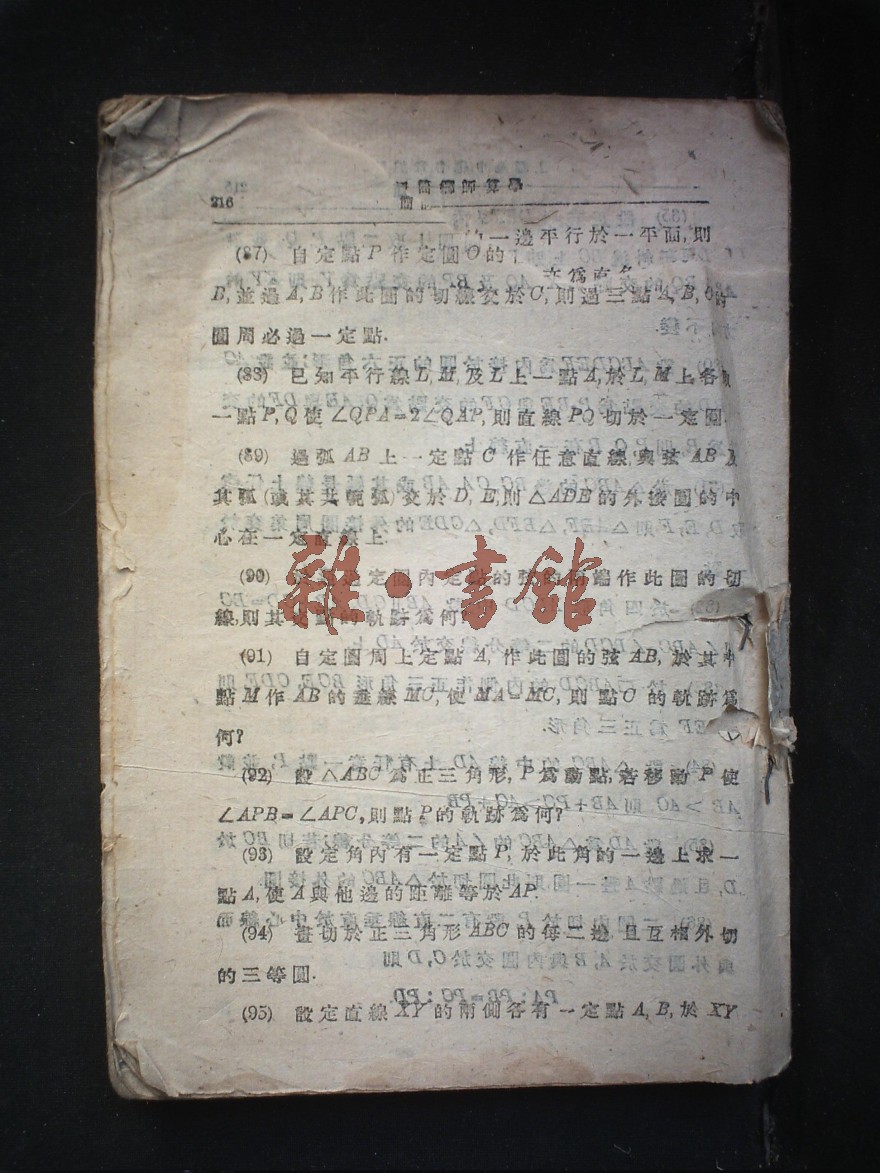 216
簡師算學
一邊平行於一平面,則
(87) 自定點P作定圓O的
B,並過A,B作此圓的切線交於C,則過三點A,B,C的
圓周必過一定點.
(88) 已知平行線L,M,及L上一點A,於L,M上各取
二點P,Q使∠QPA=2∠QAP,則直線PQ切於一定圓.
(89) 過弧AB上一定點C作任意直線,與弦AB及
其弧(或其共軛弧)交於D,E,則△ADE的外接圓的中
心在一定直線上.
(90) 過定圓內定點的弦的兩端作此圓的切
線,則其交點的軌跡爲何?
(91) 自定圓周上定點A,作此圓的弦AB,於其中
點M作AB的垂線MC,使MA=MC,則點C的軌跡爲
何?
(92) 設△ABC爲正三角形,P爲動點,若移動P使
∠APB=∠APC,則點P的軌跡爲何?
(93) 設定角內有一定點P,於此角的一邊上求一
點A,使A與他邊的距離等於AP.
(94) 畫切於正三角形ABC的每二邊且互相外切
的三等圓.
(95) 設定直線XY的兩側各有一定點A,B,於XY
雜·書館